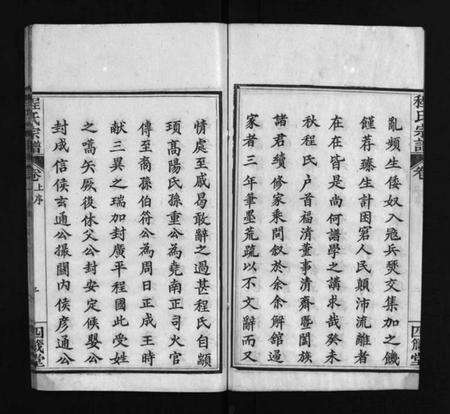 程氏宗譜
卷
亂頻生倭奴入寇兵燹交集加之饑
饉荐臻生計困窮人民顛沛流離者
在在皆是尚何譜學之講求哉癸未
秋程氏户首福清董事清齋暨闔族
諸君續修家乘問叙於余余解舘過
家者三年筆墨荒疏以不文辭而又
四箴堂
情處至戚曷敢辭之過甚程氏自顓
頊高陽氏孫重公為堯南正司火官
傳至裔孫伯符公為周日正成王時
獻三異之瑞加封廣平程國此受姓
之嚆矢厥後休父公封安定候嬰公
封成信侯玄通公撮關內侯彥通公
程氏宗譜
卷上序
四箴堂